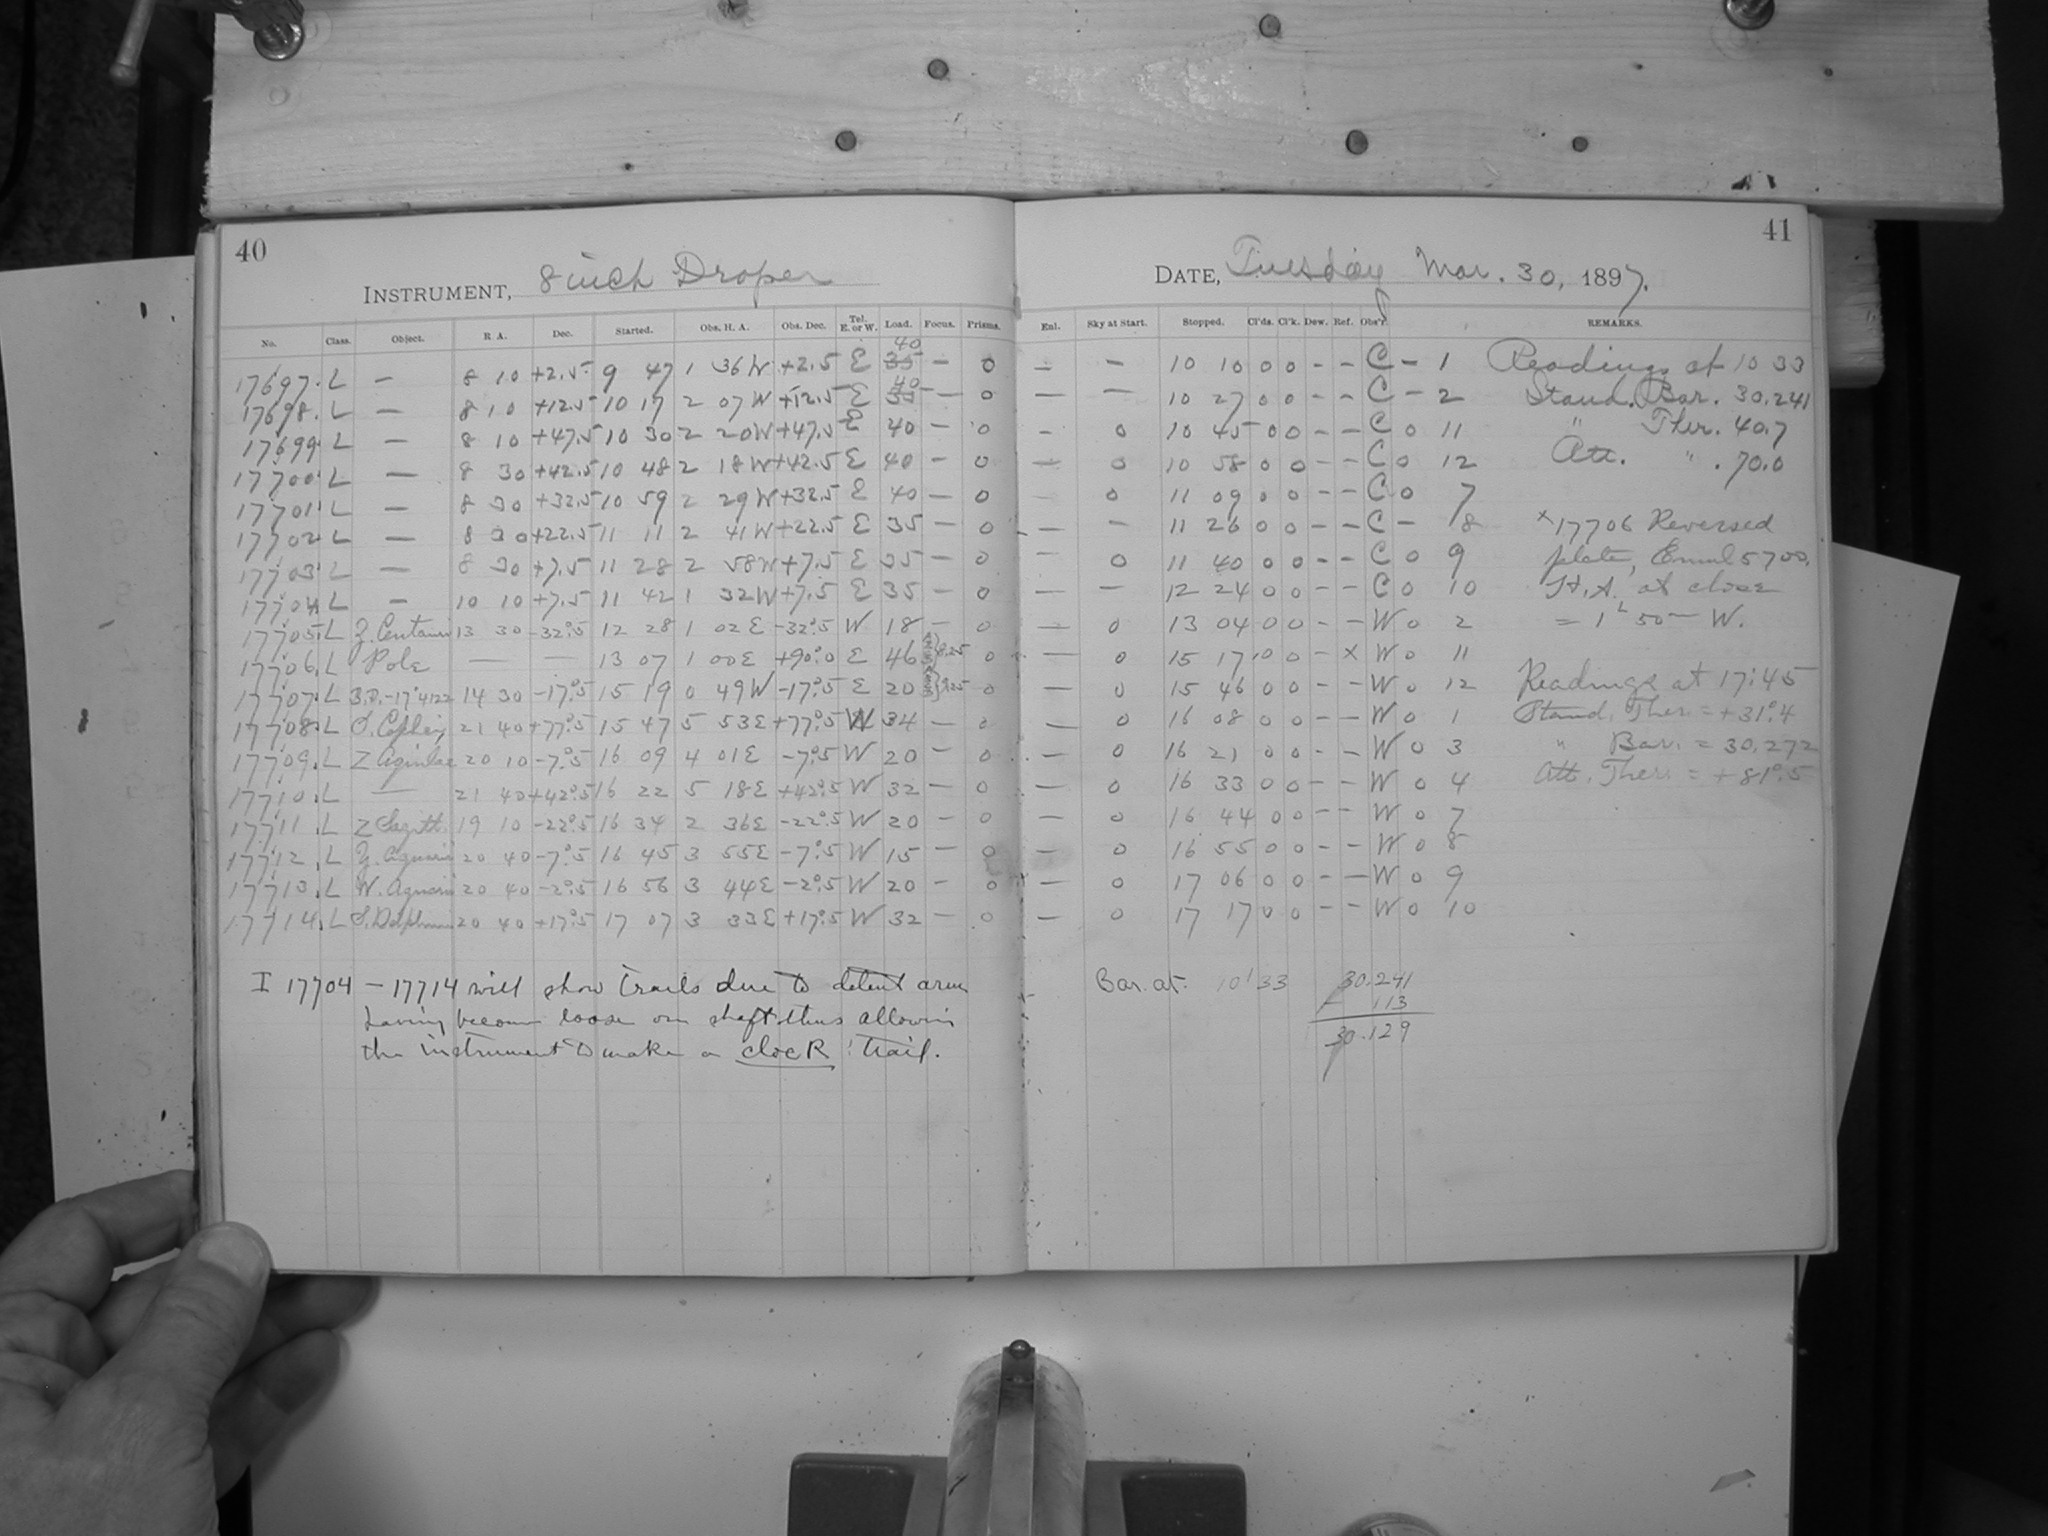 40
INSTRUMENT, 8 inch Draper
No. Class. Object. R A. Dec. Started. Obs. H. A. Obs. Dec. Tel. E. or W. Load. Focus. Prisms.
17697. L — 8 10 +2.5 9 47 1 36 W +2.5 E 35 40 — 0
17698. L — 8 10 +12.5 10 17 2 07 W +12.5 E 35 40 — 0
17699. L — 8 10 +47.5 10 30 2 20 W +47.5 E 40 — 0
17700. L — 8 30 +42.5 10 48 2 18 W +42.5 E 40 — 0
17701. L — 8 30 +32.5 10 59 2 29 W +32.5 E 40 — 0
17702. L — 8 30 +22.5 11 11 2 41 W +22.5 E 35 — 0
17703. L — 8 30 +7.5 11 28 2 58 W +7.5 E 35 — 0
17704. L — 10 10 +7.5 11 42 1 32 W +7.5 E 35 — 0
17705. L Z. Centauri 13 30 -32°.5 12 28 1 02 E -32°.5 W 18 — 0
17706. L Pole — — 13 07 1 00 E +90°.0 E 46 0
17707. L B.D.-17°4122 14 30 -17°.5 15 19 0 49 W -17°.5 E 20 0
17708. L S. Cephei 21 40 +77°.5 15 47 5 53 E +77°.5 W 34 — 0
17709. L Z 20 10 -7°.5 16 09 4 01 E -7°.5 W 20 — 0
17710. L — 21 40 +42°.5 16 22 5 18 E +42°.5 W 32 — 0
17711. L Z Sagitt. 19 10 -22°.5 16 34 2 36 E -22°.5 W 20 — 0
17712. L Y. Aquarii 20 40 -7°.5 16 45 3 55 E -7°.5 W 15 — 0
17713. L W. Aquarii 20 40 -2°.5 16 56 3 44 E -2°.5 W 20 — 0
17714. L S. Delphini 20 40 +17°.5 17 07 3 33 E +17°.5 W 32 — 0
I 17704 — 17714 will show trails due to detent arm
having become loose on shaft thus allowing
the instrument to make a clock trail.
41
DATE, Tuesday Mar. 30, 1897.
Enl. Sky at Start. Stopped. Cl'ds. Cl'k. Dew. Ref. Obs'r. REMARKS.
— — 10 10 0 0 - - C - 1 Readings at 10 33
— — 10 27 0 0 - - C - 2 Stand. Bar. 30.241
— 0 10 45 0 0 - - C 0 11 " Ther. 40.7
— 0 10 58 0 0 - - C 0 12 Att. " . 70.0
— 0 11 09 0 0 - - C 0 7
— — 11 26 0 0 - - C - 8 x 17706 Reversed
— 0 11 40 0 0 - - C 0 9 plate, Emul 5700,
— — 12 24 0 0 - - C 0 10 H.A. at close
— 0 13 04 0 0 - - W 0 2 = 1 50 W.
— 0 15 17 0 0 - x W 0 11
— 0 15 46 0 0 - - W 0 12 Readings at 17:45
— 0 16 08 0 0 - - W 0 1 Stand. Ther = +31°.4
— 0 16 21 0 0 - - W 0 3 " Bar. = 30.272
— 0 16 33 0 0 - - W 0 4 Att. Ther. = +81°.5
— 0 16 44 0 0 - - W 0 7
— 0 16 55 0 0 - - W 0 8
— 0 17 06 0 0 - - W 0 9
— 0 17 17 0 0 - - W 0 10
Bar. at. 10 33 30.241
113
30.129